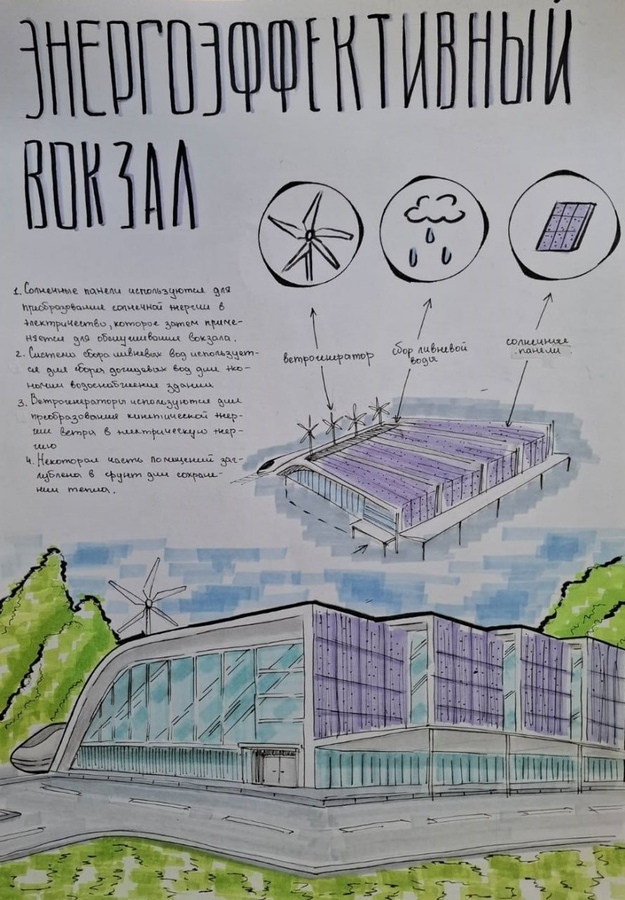 ЭНЕРГОЭФФЕКТИВНЫЙ
ВОКЗАЛ
1. Солнечные панели используются для
преобразования солнечной энергии в
электричество, которое затем приме-
няется для обслуживания вокзала.
2. Система сбора ливневых вод использует-
ся для сбора дождевых вод для эко-
номии водоснабжения здания
3. Ветрогенераторы используются для
преобразования кинетической энер-
гии ветра в электрическую энер-
гию
4. Некоторая часть помещений заг-
лублена в грунт для сохране-
нии тепла.
ветрогенератор
сбор ливневой
воды
солнечные
панели